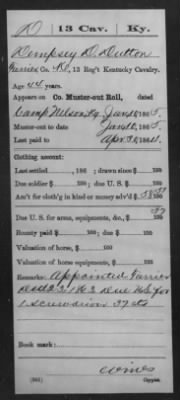 D | 13 Cav. | Ky.
Dempsey D. Dutton
Farrier Co. D, 13 Reg't Kentucky Cavalry.
Age 44 years.
Appears on Co. Muster-out Roll, dated
Camp Nelson, Ky. Jan 10, 1865.
Muster-out to date Jan 10, 1865.
Last paid to Apr 30, 1864.
Clothing account:
Last settled , 186 ; drawn since $ 100
Due soldier $ 100; due U. S. $ 100
Am't for cloth'g in kind or money adv'd $ 100
Due U. S. for arms, equipments, &c., $ 37/100
Bounty paid $ 100; due $ 100
Valuation of horse, $ 100
Valuation of horse equipments, $ 100
Remarks: Appointed Farrier
Dec 23 1863 Due U.S. for
1 screwdriver 37 cts
Book mark:
Copyist.